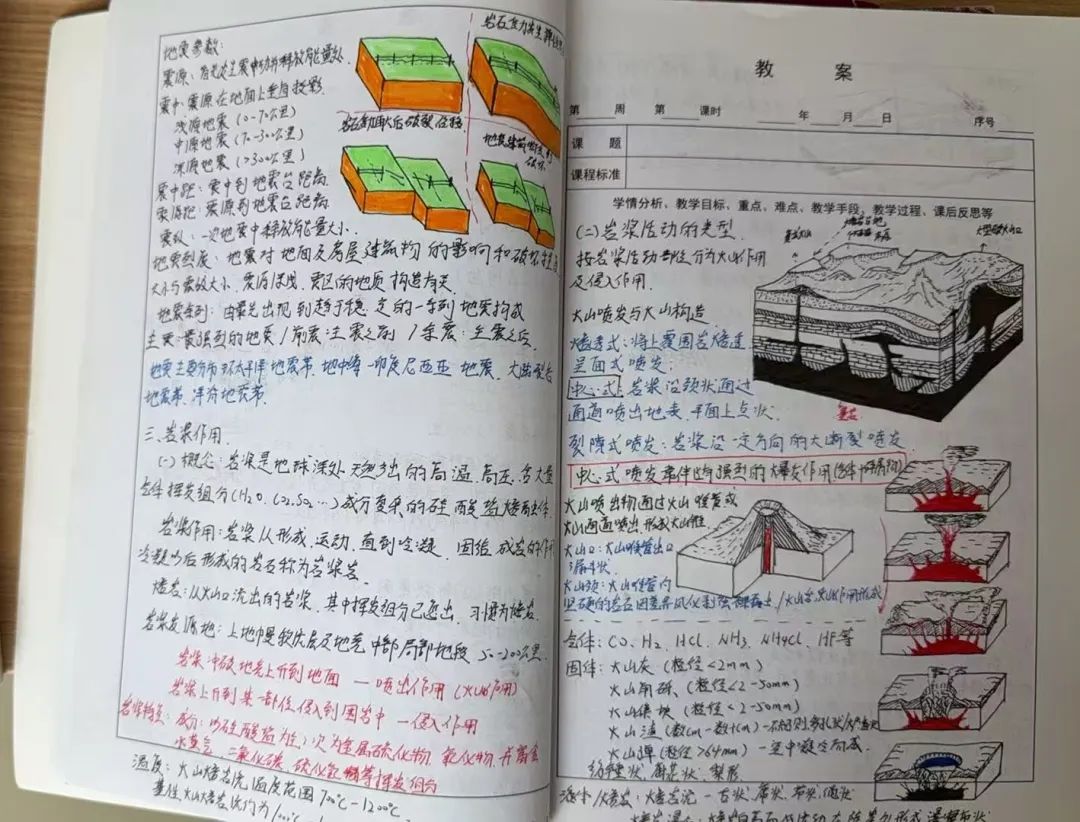 地震参数:
震源: 首先发生震中动并释放能量处.
震中: 震源在地面上垂直投影.
浅源地震 (0-70公里)
中源地震 (70-300公里)
深源地震 (>300公里)
震中距: 震中到地震台距离.
震源距: 震源到地震台距离
震级: 一次地震中释放能量大小.
地震烈度: 地震对地面及房屋建筑物的影响和破坏
大小与震级大小、震源深浅、震区的地质构造有关.
地震系列: 由最先出现到趋于稳定的一系列地震构成
主震: 最强烈的地震/前震: 主震之前/余震: 主震之后.
地震主要分布环太平洋地震带. 地中海-印度尼西亚地震. 大陆裂谷
地震带. 洋脊地震带.
三. 岩浆作用.
(一) 概念: 岩浆是地球深处天然产出的高温高压. 含大量
气体挥发组分(H2O. CO2. SO2 ...)成分复杂的硅酸盐熔融体.
岩浆作用: 岩浆从形成、运动, 直到冷凝、固结成岩的作用
冷凝以后形成的岩石称为岩浆岩.
熔岩: 从火山口流出的岩浆. 其中挥发组分已逸出. 习惯为熔岩.
岩浆发源地: 上地幔软流层及地壳中部局部地段 50-200公里.
岩浆冲破地壳上升到地面 — 喷出作用 (火山作用)
岩浆上升到某一部位侵入到围岩中 — 侵入作用
成分: 以硅酸盐为主, 次为金属硫化物. 氧化物. 并富含
水蒸气 二氧化碳、硫化氢等挥发组分
温度: 火山熔岩流温度范围 700℃-1200℃
基性火山熔岩流约为
岩石破裂
教 案
第 周 第 课时 年 月 日 序号
课 题
课程标准
学情分析、教学目标、重点、难点、教学手段、教学过程、课后反思等
(二) 岩浆活动的类型.
按岩浆活动部位分为火山作用
及侵入作用.
火山喷发与火山构造.
熔透式: 将上覆围岩熔透
呈面式喷发.
中心式: 岩浆沿颈状通过
通道喷出地表 平面上点状.
裂隙式喷发: 岩浆沿一定方向的大断裂喷发
中心式喷发常伴随强烈的爆发作用
火山喷出物通过火山喉管或
火山通道喷出, 形成火山锥
火山口: 火山喉管出口
漏斗状.
火山颈: 火山喉管内
气体: CO、H2、HCl、NH3、NH4Cl、HF等
固体: 火山灰 (粒径<2mm)
火山角砾 (粒径<2-50mm)
火山集块 (粒径<2-50mm)
火山渣 (数cm-数十cm)
火山弹 (粒径>64mm) — 空中凝冷而成.
纺锤状、扁芯状、梨形.